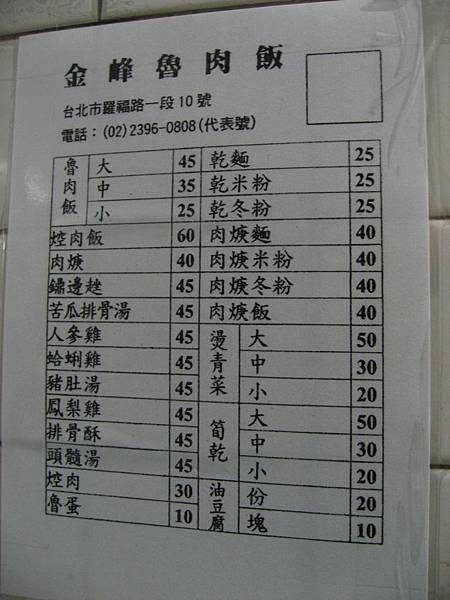 金峰魯肉飯
台北市羅福路一段10號
電話：(02)2396-0808(代表號)
魯肉飯 大 45 乾麵 25
中 35 乾米粉 25
小 25 乾冬粉 25
焢肉飯 60 肉焿麵 40
肉焿 40 肉焿米粉 40
鏽邊趖 45 肉焿冬粉 40
苦瓜排骨湯 45 肉焿飯 40
人參雞 45 燙青菜 大 50
蛤蜊雞 45 中 30
豬肚湯 45 小 20
鳳梨雞 45 筍乾 大 50
排骨酥 45 中 30
頭髓湯 45 小 20
焢肉 30 油豆腐 份 20
魯蛋 10 塊 10